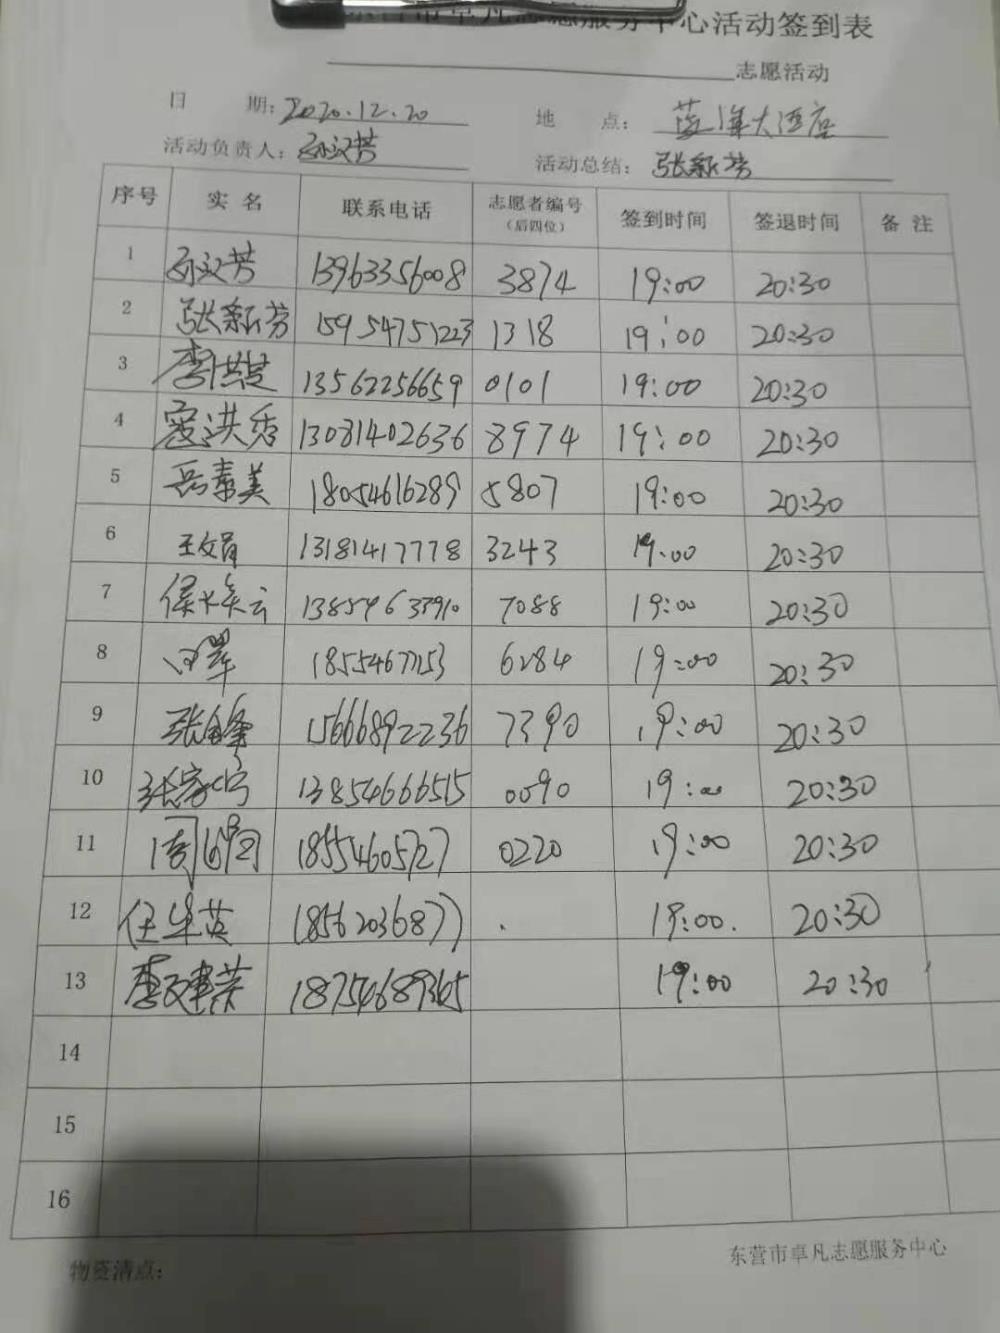 东营市卓凡志愿服务中心活动签到表
志愿活动
日 期: 2020.12.20 地 点: 蓝海大酒店
活动负责人: 孙汉芳 活动总结: 张新芳
序号 实 名 联系电话 志愿者编号 (后四位) 签到时间 签退时间 备 注
1 孙汉芳 13963356008 3874 19:00 20:30
2 张新芳 15954751223 1318 19:00 20:30
3 13562256659 0101 19:00 20:30
4 寇洪秀 13081402636 8974 19:00 20:30
5 岳素美 18054616289 5807 19:00 20:30
6 王文娟 13181417778 3243 19:00 20:30
7 7088 19:00 20:30
8 6284 19:00 20:30
9 15666892236 7390 19:00 20:30
10 13854666515 0090 19:00 20:30
11 18554605727 0220 19:00 20:30
12 任华英 19:00. 20:30
13 19:00 20:30
14
15
16
物资清点:
东营市卓凡志愿服务中心